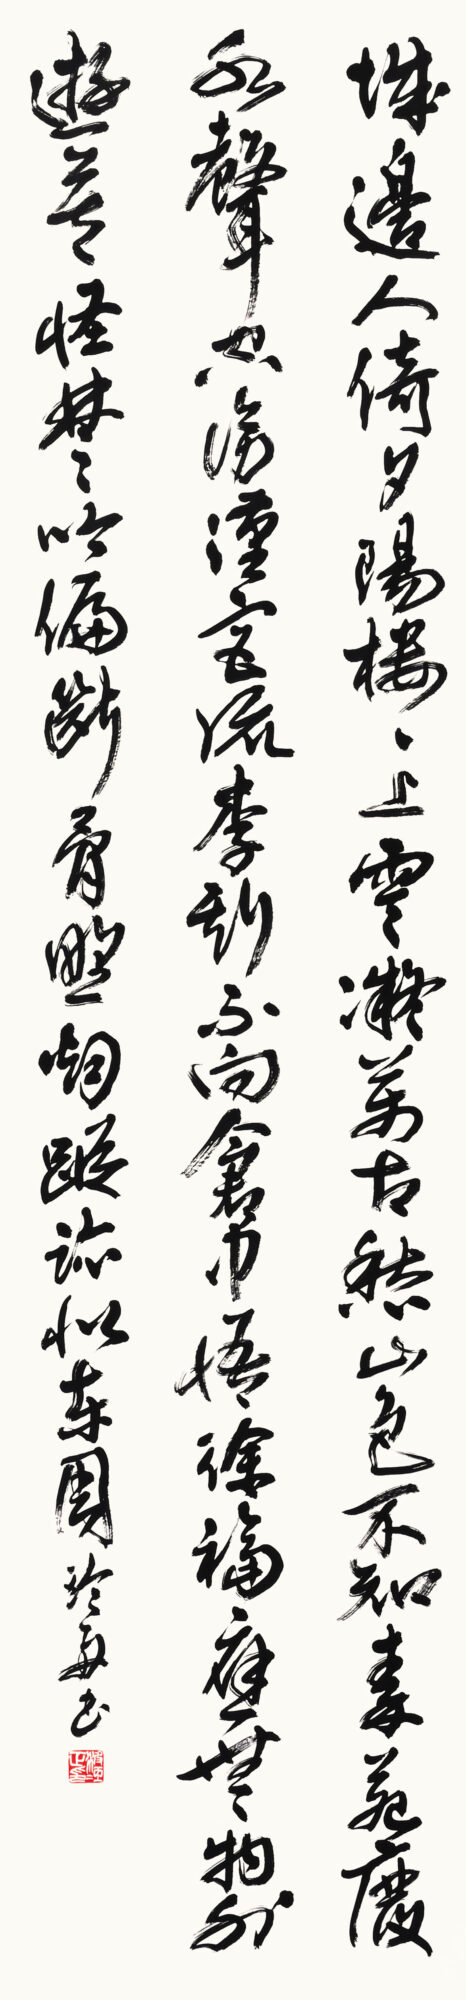 城邊人倚夕陽樓〻上雲凝萬古愁山色不知秦苑廢
水聲空傍漢宮流李斯不向倉中悟徐福應無物外
遊莫怪楚吟偏斷骨野烟蹤跡似東周 書